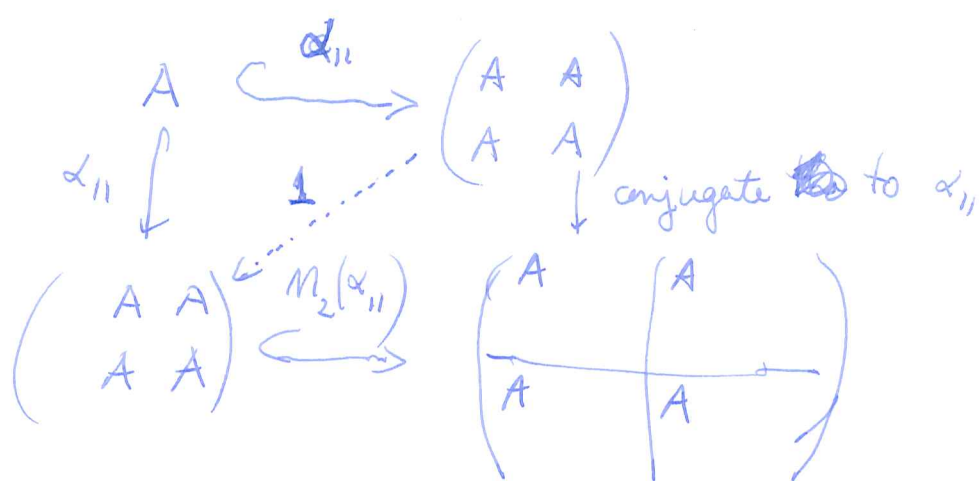 α₁₁
A
( A A
A A )
α₁₁
1
conjugate to α₁₁
( A A
A A )
M₂(α₁₁)
( A A
A A )